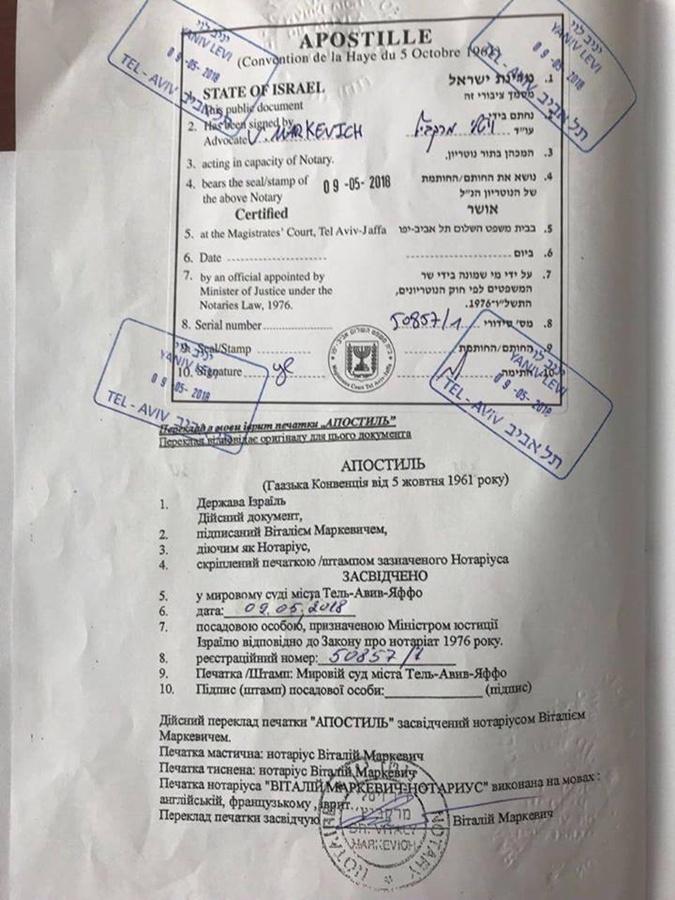 APOSTILLE
(Convention de la Haye du 5 Octobre 1961)
STATE OF ISRAEL
This public document
2. Has been signed by
Advocate V. MARKEVICH
3. acting in capacity of Notary.
4. bears the seal/stamp of 09-05-2018
the above Notary
Certified
5. at the Magistrates' Court, Tel Aviv-Jaffa
6. Date
7. by an official appointed by
Minister of Justice under the
Notaries Law, 1976.
8. Serial number
9. Seal/Stamp
10. Signature
1. מדינת ישראל
מסמך ציבורי זה
2. נחתם בידי
עו״ד
3. המכהן בתור נוטריון.
4. נושא את החותם/החותמת
של הנוטריון הנ״ל
אושר
5. בבית משפט השלום תל אביב-יפו
6. ביום
7. על ידי מי שמונה בידי שר
המשפטים לפי חוק הנוטריונים,
התשל״ו-1976.
8. מס׳ סידורי 50857/1
9. החותם/החותמת
10. חתימה
יניב לוי
YANIV LEVI
09-05-2018
TEL-AVIV תל אביב
יניב לוי
YANIV LEVI
09-05-2018
TEL-AVIV תל אביב
יניב לוי
YANIV LEVI
09-05-2018
TEL-AVIV תל אביב
יניב לוי
YANIV LEVI
09-05-2018
TEL-AVIV תל אביב
Переклад з мови іврит печатки „АПОСТИЛЬ"
Переклад відповідає оригіналу для цього документа
АПОСТИЛЬ
(Гаазька Конвенція від 5 жовтня 1961 року)
1. Держава Ізраїль
Дійсний документ,
2. підписаний Віталієм Маркевичем,
3. діючим як Нотаріус,
4. скріплений печаткою /штампом зазначеного Нотаріуса
ЗАСВІДЧЕНО
5. у мировому суді міста Тель-Авив-Яффо
6. дата: 09.05.2018
7. посадовою особою, призначеною Міністром юстиції
Ізраїлю відповідно до Закону про нотаріат 1976 року.
8. реєстраційний номер: 50857/1
9. Печатка /Штамп: Мировій суд міста Тель-Авив-Яффо
10. Підпис (штамп) посадової особи: (підпис)
Дійсний переклад печатки "АПОСТИЛЬ" засвідчений нотаріусом Віталієм
Маркевичем.
Печатка мастична: нотаріус Віталій Маркевич
Печатка тиснена: нотаріус Віталій Маркевич
Печатка нотаріуса "ВІТАЛІЙ МАРКЕВИЧ-НОТАРИУС" виконана на мовах :
англійській, французькому ,іврит.
Переклад печатки засвідчую Віталій Маркевич
DR. VITALY
MARKEVICH
NOTARY